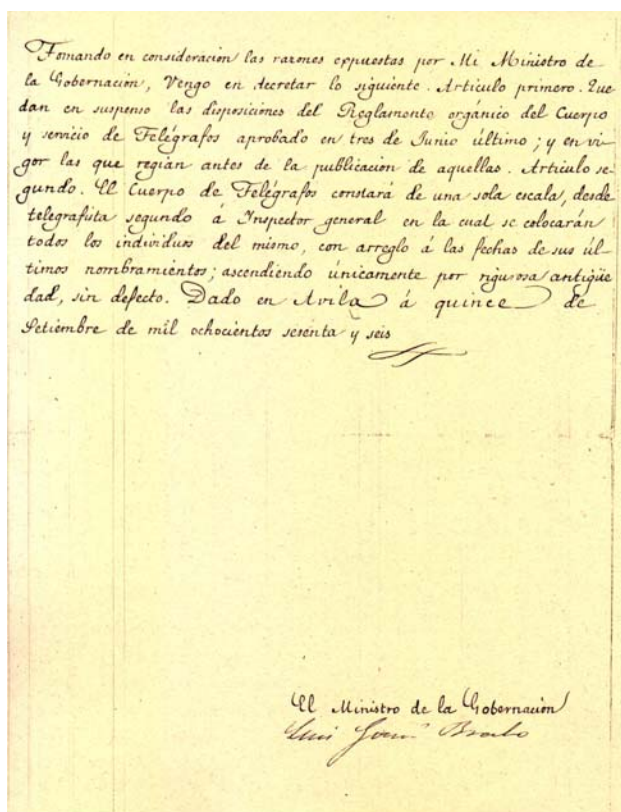 Tomando en consideracion las razones expuestas por Mi Ministro de
la Gobernacion, Vengo en decretar lo siguiente. Articulo primero. Que-
dan en suspenso las disposiciones del Reglamento orgánico del Cuerpo
y servicio de Telégrafos aprobado en tres de Junio último; y en vi-
gor las que regian antes de la publicacion de aquellas. Articulo se-
gundo. El Cuerpo de Telégrafos constará de una sola escala, desde
telegrafista segundo á Inspector general en la cual se colocarán
todos los individuos del mismo, con arreglo á las fechas de sus úl-
timos nombramientos; ascendiendo únicamente por rigurosa antigüe
dad, sin defecto. Dado en Avila á quince de
Setiembre de mil ochocientos sesenta y seis
El Ministro de la Gobernacion
Luis Gonz Brabo